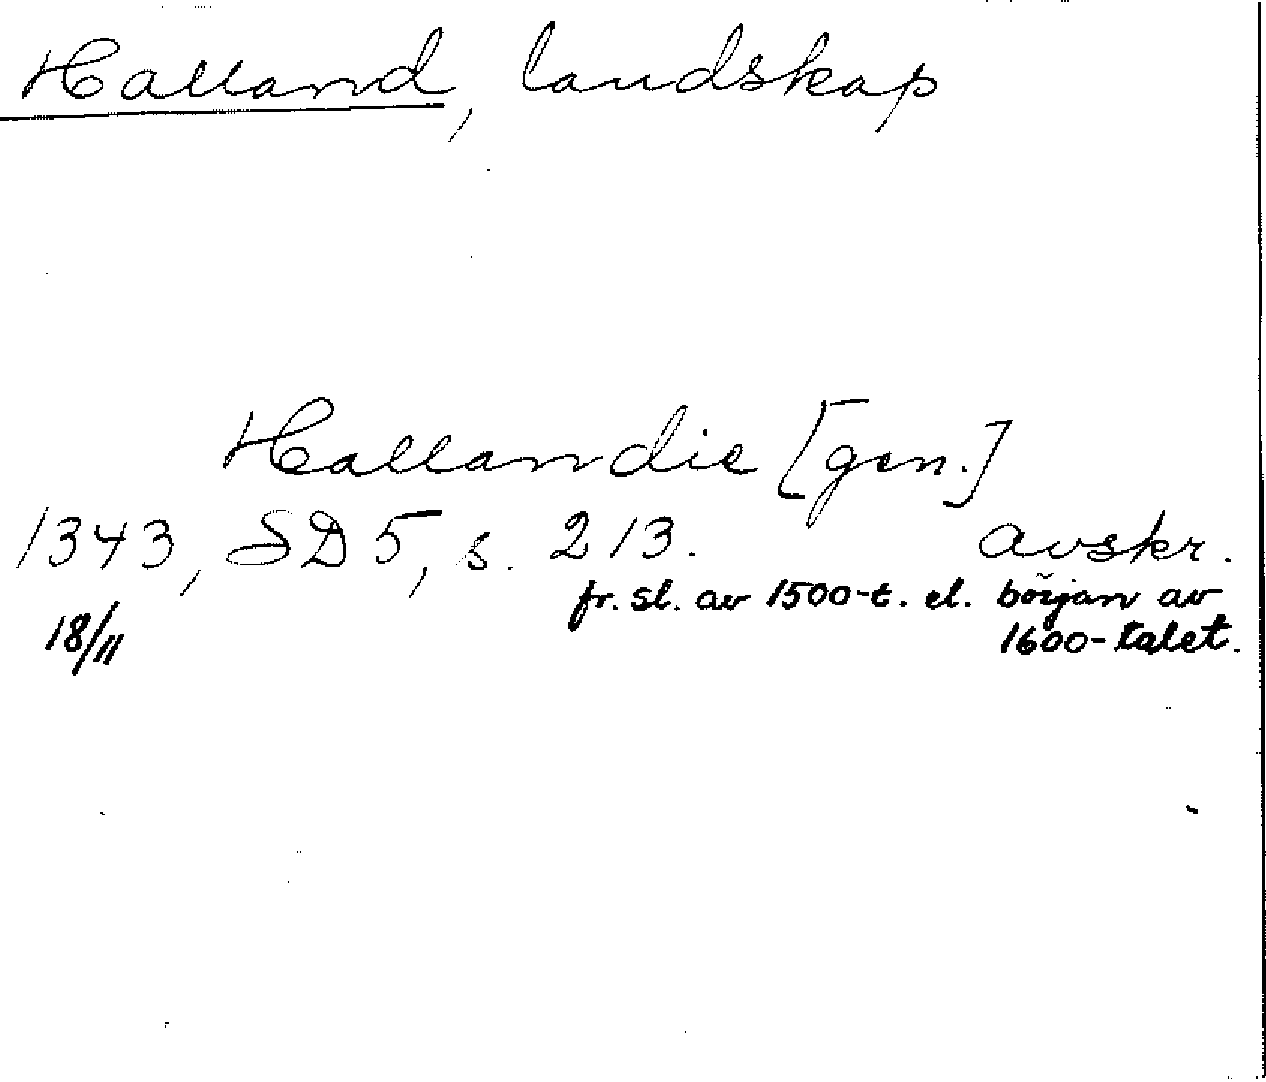 Halland, landskap
Hallandie [gen.]
1343, SD 5, s. 213. avskr.
fr. sl. av 1500-t. el. början av
18/11 1600-talet.